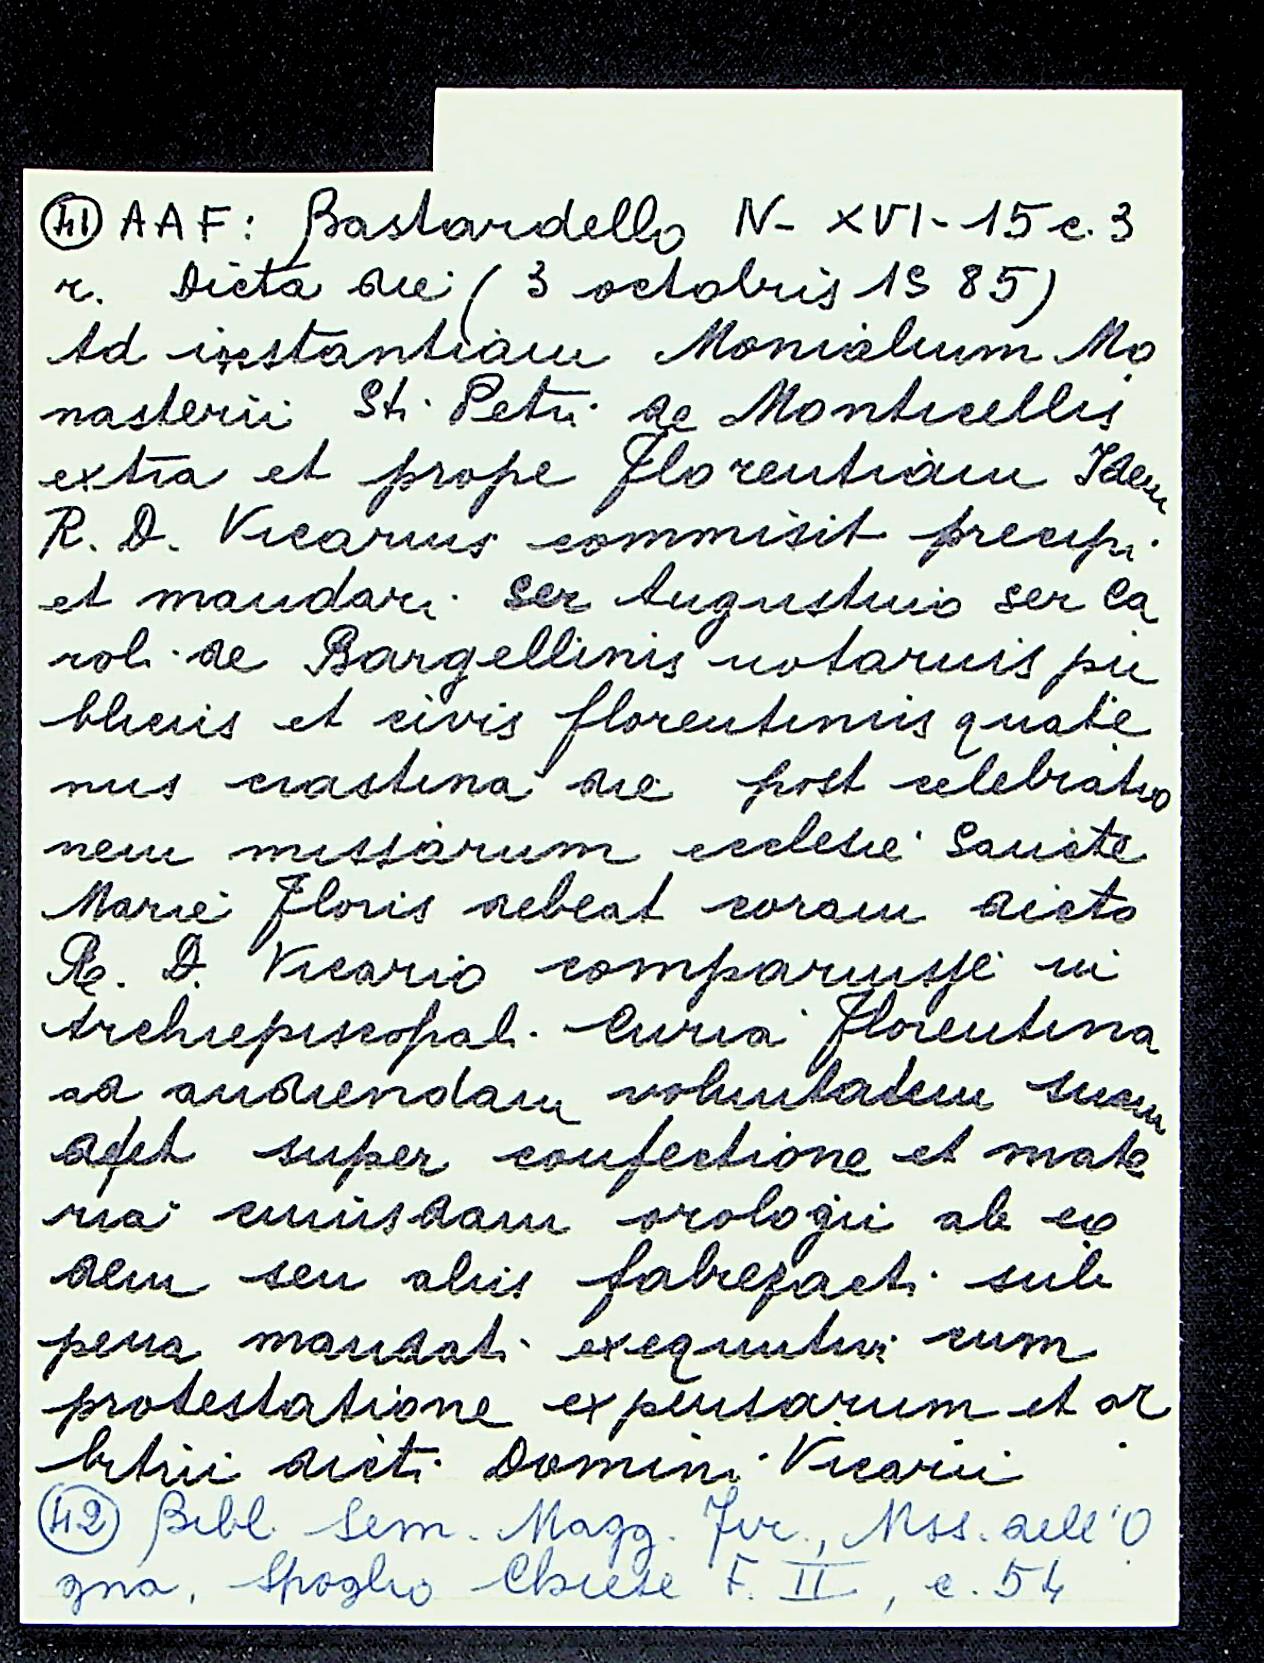 (41) AAF: Bastardello N- XVI-15 c. 3
r. Dicta die (3 octobris 1585)
Ad instantiam Monialium Mo
nasterii Sti. Petri de Monticellis
extra et prope Florentiam Idem
R. D. Vicarius commisit precipi
et mandari ser Augustino ser Ca
roli de Bargellinis notarius pu
blicus et civis florentinus quate
nus crastina die post celebratio
nem missarum ecclesie Sancte
Marie Floris debeat coram dicto
R. D. Vicario comparuisse in
Archiepiscopali Curia Florentina
ad audiendam voluntatem suam
super confectione et mate
ria cuiusdam orologii ab eo
dem seu aliis fabrefacti sub
pena mandati exequutivi cum
protestatione expensarum et ar
bitrii dicti Domini Vicarii
(42) Bibl. Sem. Magg. Fir., Mss. dell'O
gna, Spoglio Chiese F. II, c. 54